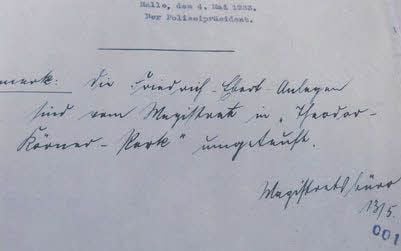 Halle, den 4. Mai 1933.
Der Polizeipräsident.
merk: Die Friedrich-Ebert-Anlagen
sind vom Magistrat in „Theodor-
Körner-Park“ umgetauft.
Magistratsbüro
13/5.
001